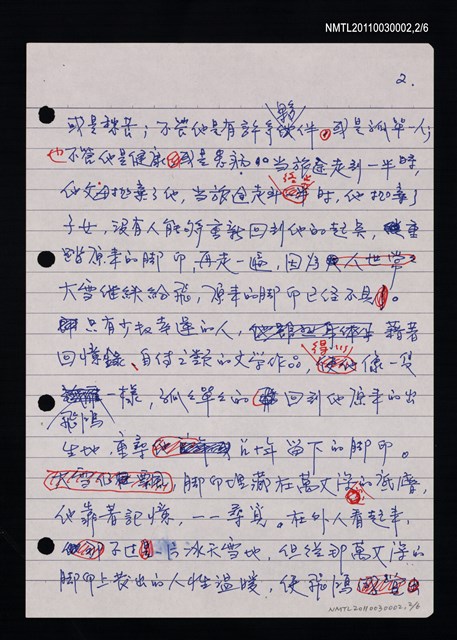 NMTL20110030002,2/6
2.
或是殘喪；不管他是有許多夥伴，或是孤單一人；
也不管他是健康或是患病。當旅途走到一半時，
他父母拋棄了他，當旅途走到終站時，他拋棄了
子女，沒有人能夠重新回到他的起點，重
踏原來的腳印，再走一遍，因為
大雪繼續紛飛，原來的腳印已經不見。
只有少數幸運的人，藉著
回憶錄、自傳之類的文學作品，得以像一隻
飛鴻
一樣，孤孤單單的回到他原來的出
生地，重塑六十年留下的腳印。
腳印埋藏在萬丈深的底層，
他靠著記憶，一一尋覓。在外人看起來，
不過是一片冰天雪地，但從那萬丈深的
腳印上發出的人性溫暖，使飛鴻
NMTL20110030002.2/6